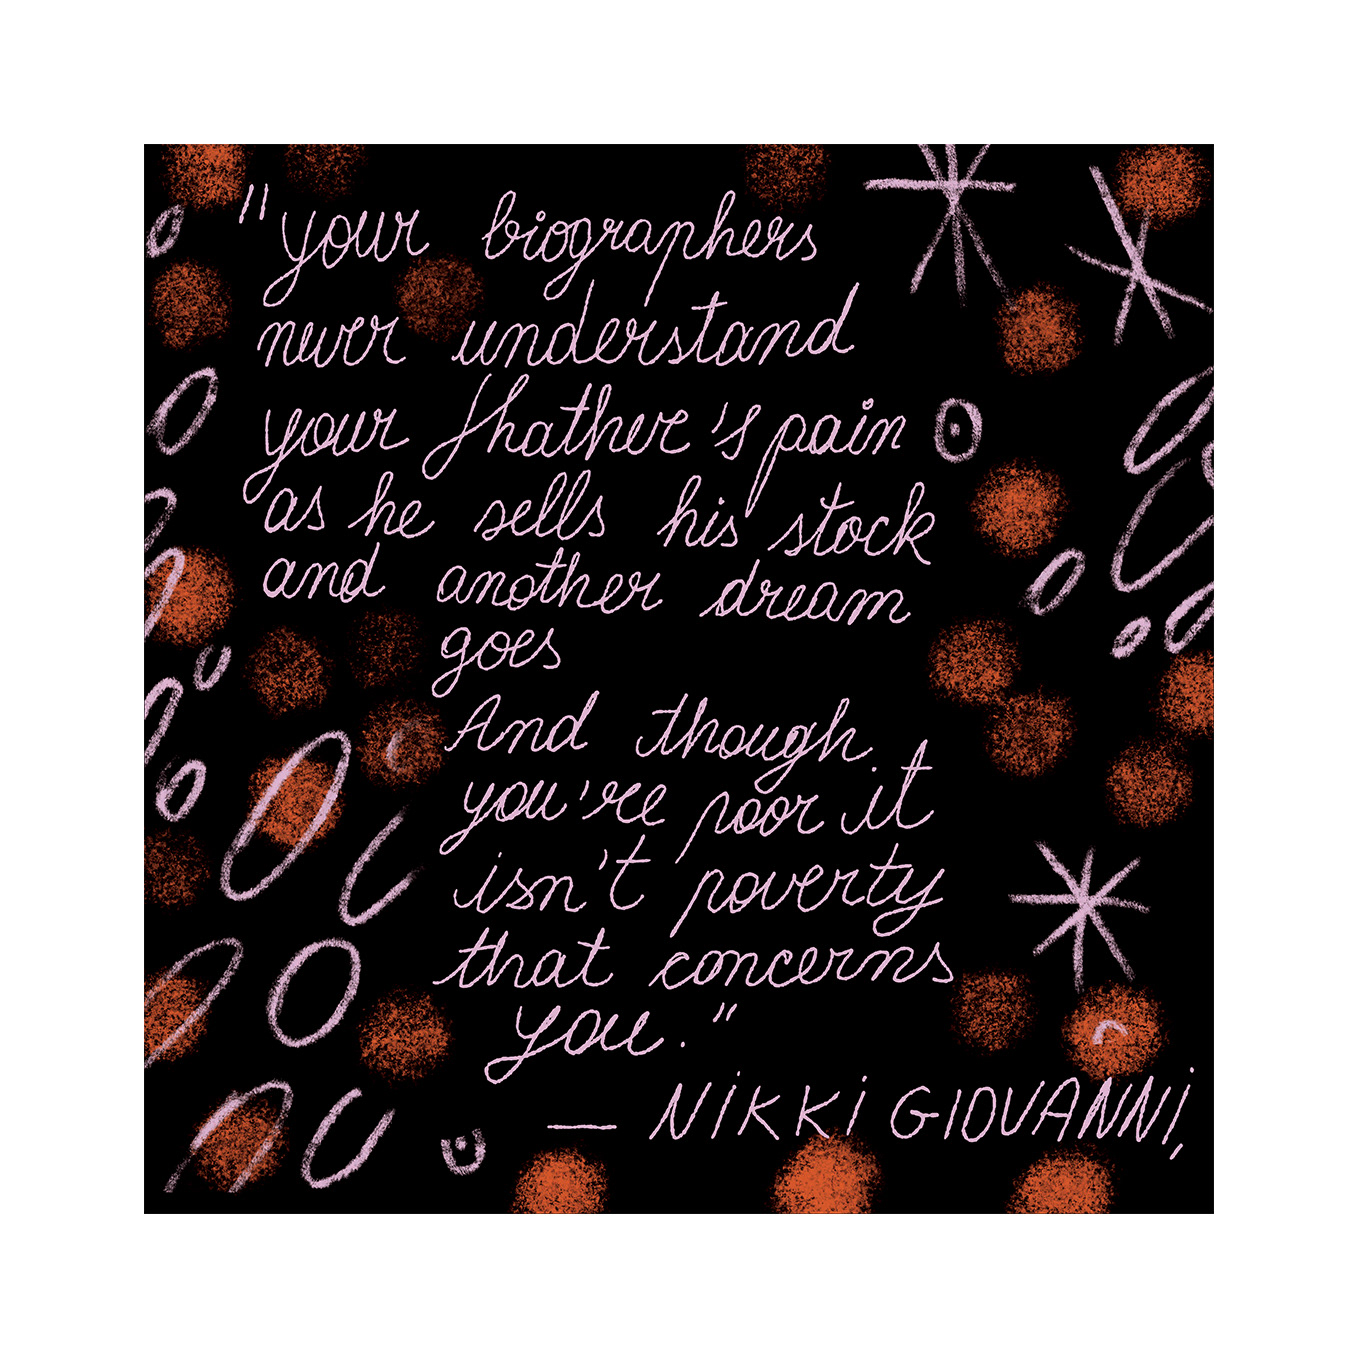 "your biographers
never understand
your fhather's pain
as he sells his stock
and another dream
goes
And though
you're poor it
isn't poverty
that concerns
you."
— NIKKI GIOVANNI,